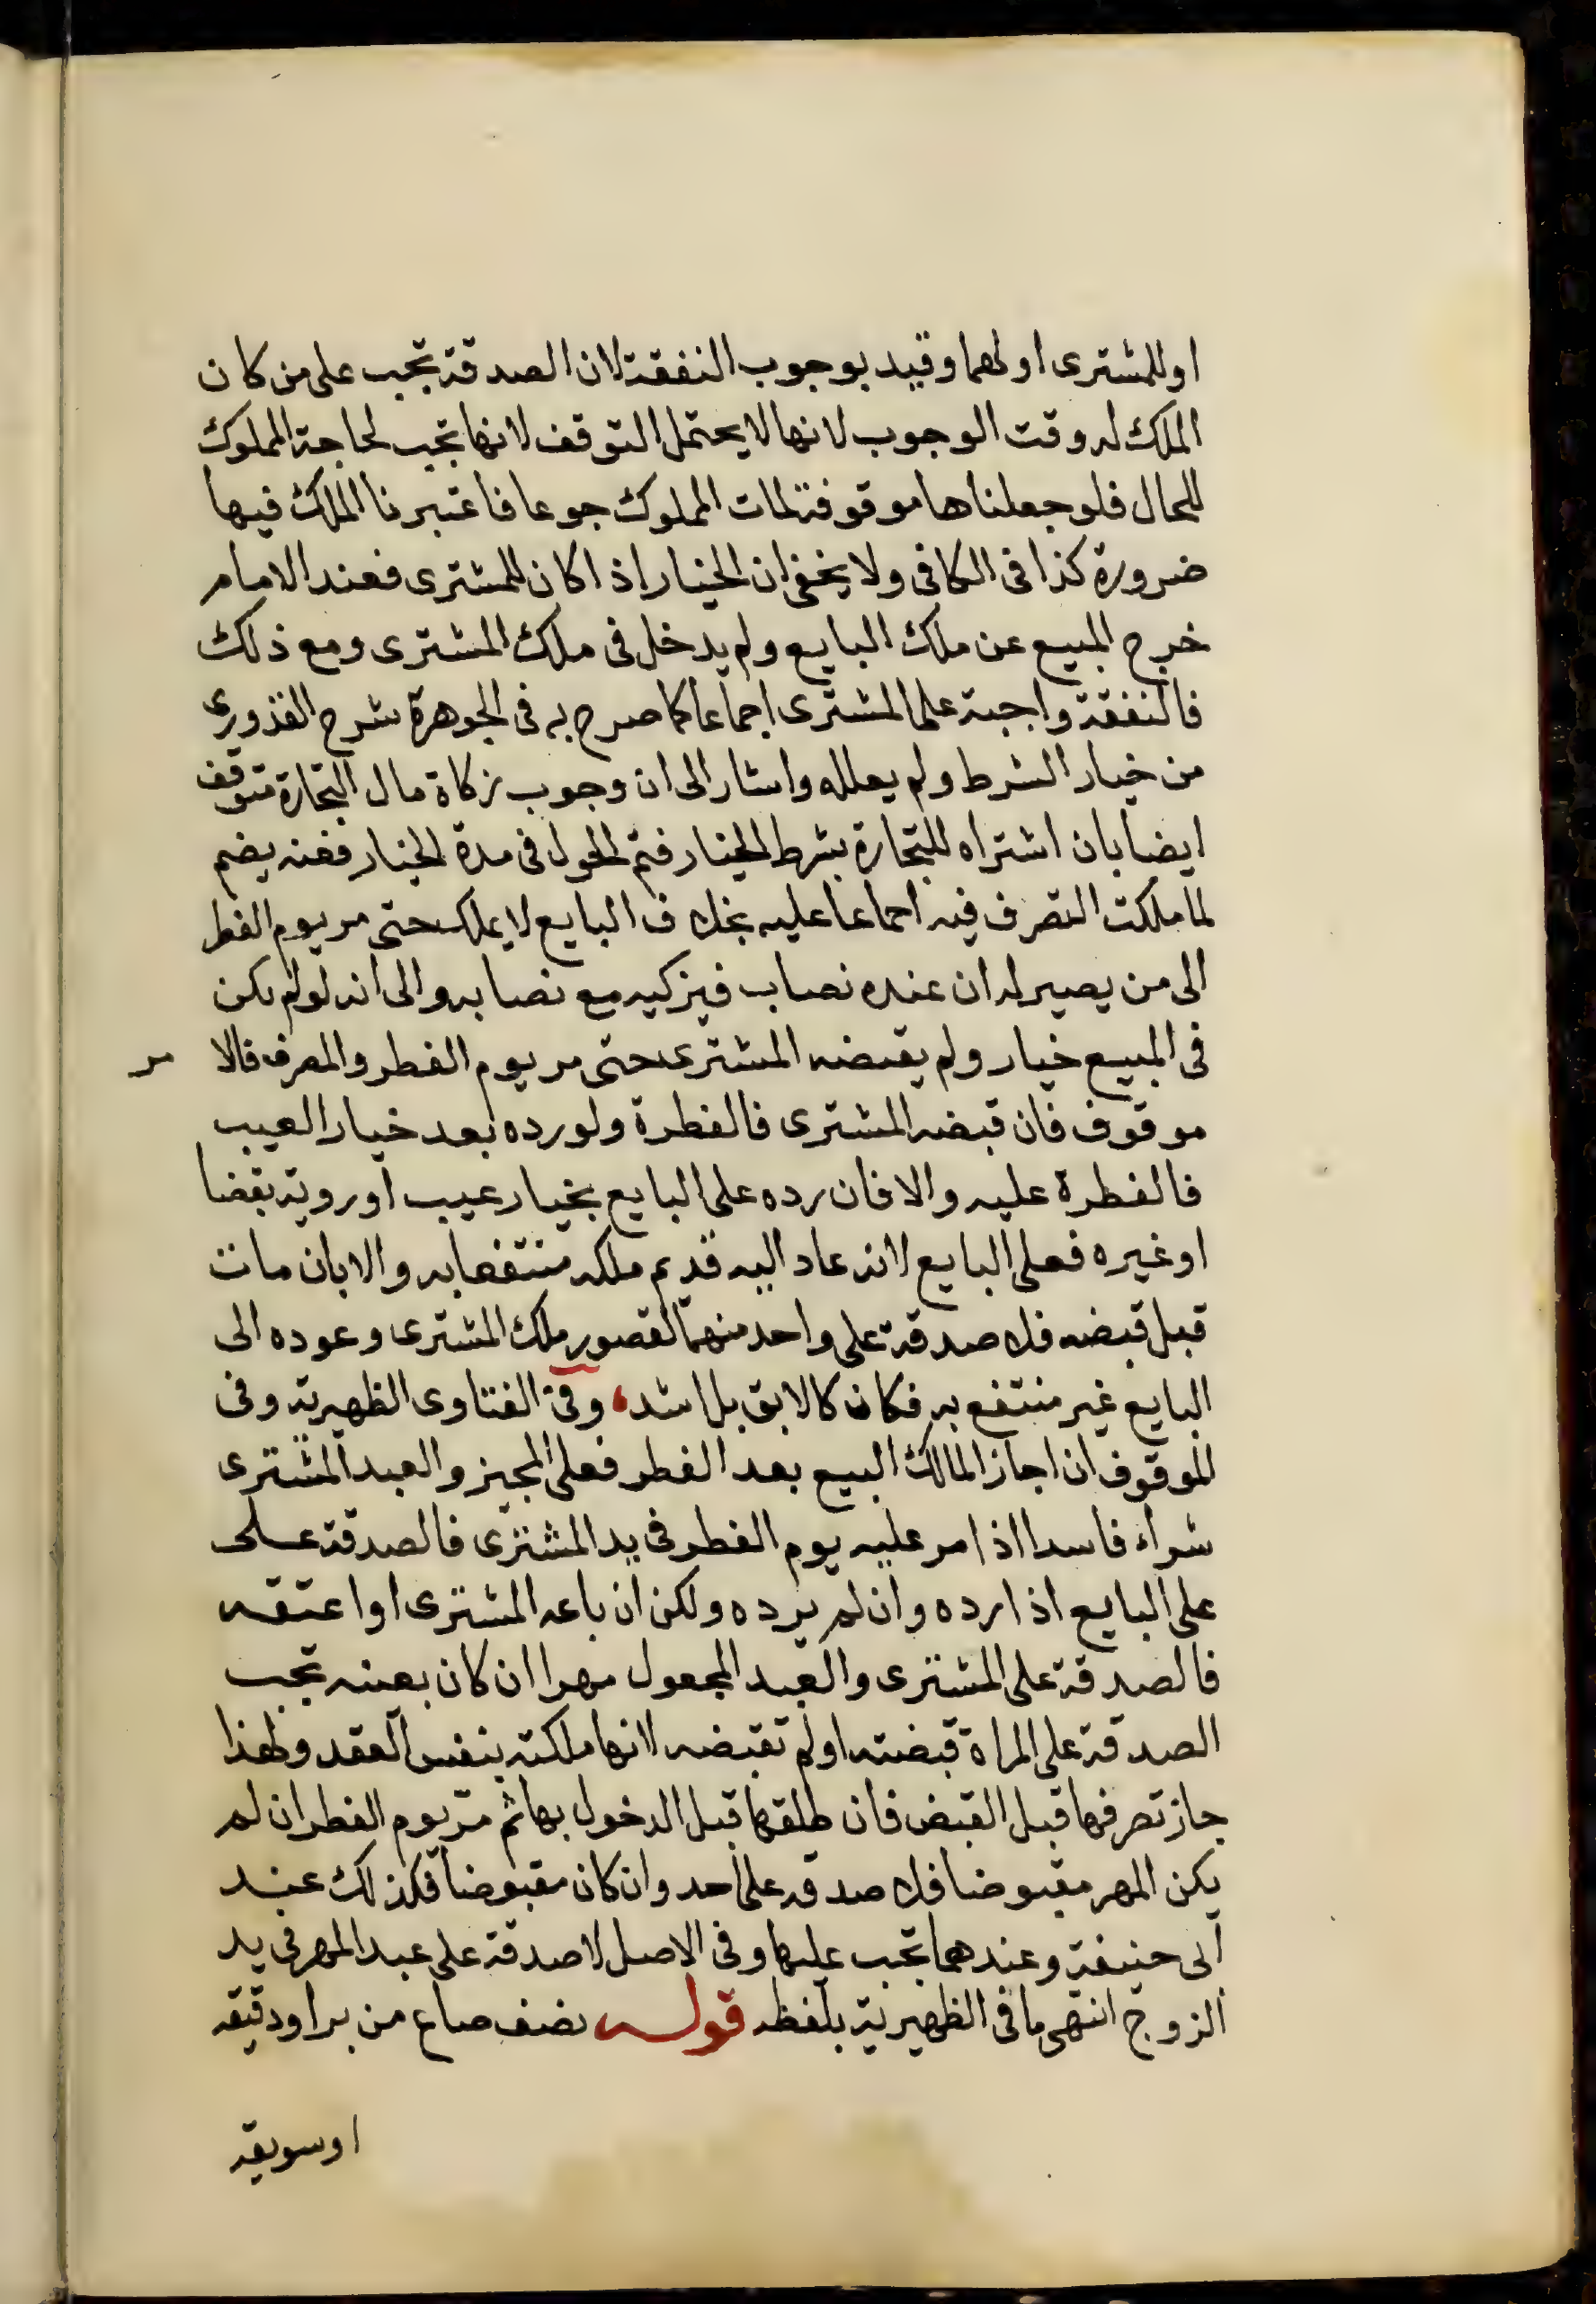 او للمشترى او لهما وقيد بوجوب النفقة لان الصدقة تجب على من كان
الملك له وقت الوجوب لانها لا يحتمل التوقف لانها تجب لحاجة المملوك
للحال فلو جعلناها موقوفة لمات المملوك جوعا فاعتبرنا الملك فيها
ضرورة كذا فى الكافى ولا يخفى ان الخيار اذا كان للمشترى فعند الامام
خرج المبيع عن ملك البايع ولم يدخل فى ملك المشترى ومع ذلك
فالنفقة واجبة على المشترى اجماعا كما صرح به فى الجوهرة شرح القدورى
من خيار الشرط ولم يعلله واشار الى ان وجوب زكاة مال التجارة متوقف
ايضا بان اشتراه للتجارة بشرط الخيار فتم الحول فى مدة الخيار فعنه يضم
لما ملكت التصرف فيه اجماعا عليه بخلاف البايع لا يملك حتى مر يوم الفطر
الى من يصير له ان عنده نصاب فيزكيه مع نصابه والى انه لو لم يكن
فى المبيع خيار ولم يقبضه المشترى حتى مر يوم الفطر والمصرف فالا مر
موقوف فان قبضه المشترى فالفطرة ولو رده بعد خيار العيب
فالفطرة عليه والا فان رده على البايع بخيار عيب او روية بقضا
او غيره فعلى البايع لانه عاد اليه قديم ملكه منتفعا به والا بان مات
قبل قبضه فلا صدقة على واحد منهما لقصور ملك المشترى وعوده الى
البايع غير منتفع به فكان كالابق بل اشد، وفى الفتاوى الظهيرية وفى
الموقوف ان اجاز المالك البيع بعد الفطر فعلى المجيز والعبد المشترى
شراء فاسدا اذا مر عليه يوم الفطر فى يد المشترى فالصدقة على
على البايع اذا رده وان لم يرده ولكن ان باعه المشترى او اعتقه
فالصدقة على المشترى والعبد المجعول مهرا ان كان بعينه تجب
الصدقة على المراة قبضته او لم تقبضه لانها ملكته بنفس العقد ولهذا
جاز تصرفها قبل القبض فان طلقها قبل الدخول بها ثم مر يوم الفطر ان لم
يكن المهر مقبوضا فلا صدقة على احد وان كان مقبوضا فكذلك عند
ابى حنيفة وعندهما تجب عليها وفى الاصل لا صدقة على عبد المهر فى يد
الزوج انتهى ما فى الظهيرية بلفظه قوله نصف صاع من بر او دقيقه
او سويقه